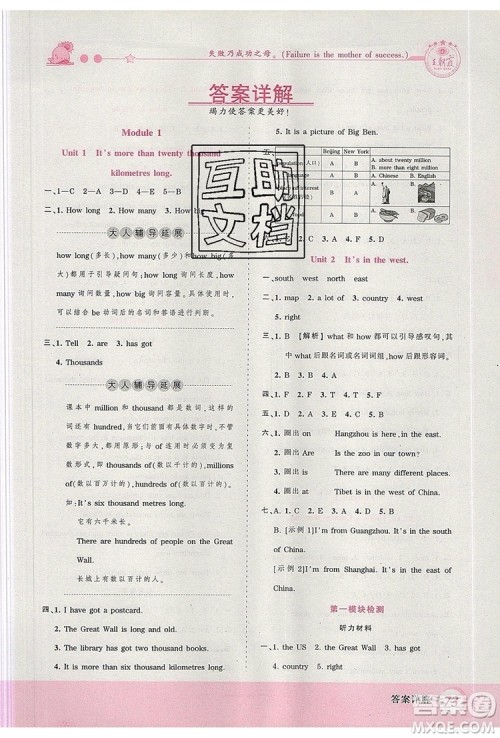 失败乃成功之母。(Failure is the mother of success.)
王朝霞
答案详解
竭力使答案更美好！
Module 1
Unit 1 It's more than twenty thousand
kilometres long.
一、1—C 2—A 3—D 4—E 5—B
二、1. How long 2. How many 3. How
大人辅导延展
how long(多长)、how
作为引导疑问句；how
how 询问性质、程度、
may 询问数量，具体
合 be 动词后的名词和答语进行判断。
三、1. Tell 2. are 3. has got
4. Thousands
大人辅导延展
课本中 million 和 thousand 前有具体的数
词；还有 hundred 等词，当这些词前有具体
数字时，用单数形式；当它们前面无具体
数字，且与 of 连用时必须变为复数
形式，如 thousands of(数以千计的)、hundreds
of(数以百计的)、millions of(数以百万计的)。
如：It's six thousand metres long.
它有六千米长。
There are hundreds of people on the Great
Wall.
长城上有数以百计的人。
四、1. I have got a postcard.
2. The Great Wall is in China.
3. The library has got two thousand books.
4. It's six thousand kilometres long.
5. It is a picture of Big Ben.
五、
Beijing New York
Population(人口) A B
A. about twenty million
B. about eight million
Language A B
A. Chinese B. English
interest B A
Food A B
互助文档
Unit 2 It's in the west.
一、south west north east
二、1. map 2. a lot of 3. country 4. west
5. right
三、1. B 【解析】what 和 how 可以引导感叹句，其
中，what 后跟名词或名词词组，how 后跟形容词。
2. B 3. B 4. A 5. B
四、1. F 2. T 3. F 4. T 5. T
六、1. 圈出 on Hangzhou is in the east.
2. 圈出 Are Is the zoo in our town?
3. 圈出 is There are many different places.
4. 圈出 an Tibet is in the west of China.
七、A. 1. A 2. C 3. D 4. B
B. [示例 1]I'm from Guangzhou. It's in the south of
China.
[示例 2]I'm from Shanghai. It's in the east of
China.
第一模块检测
听力材料
一、1. the US 2. the Great Wall 3. east
4. country 5. right
答案详解
答案圈
MXQE.COM